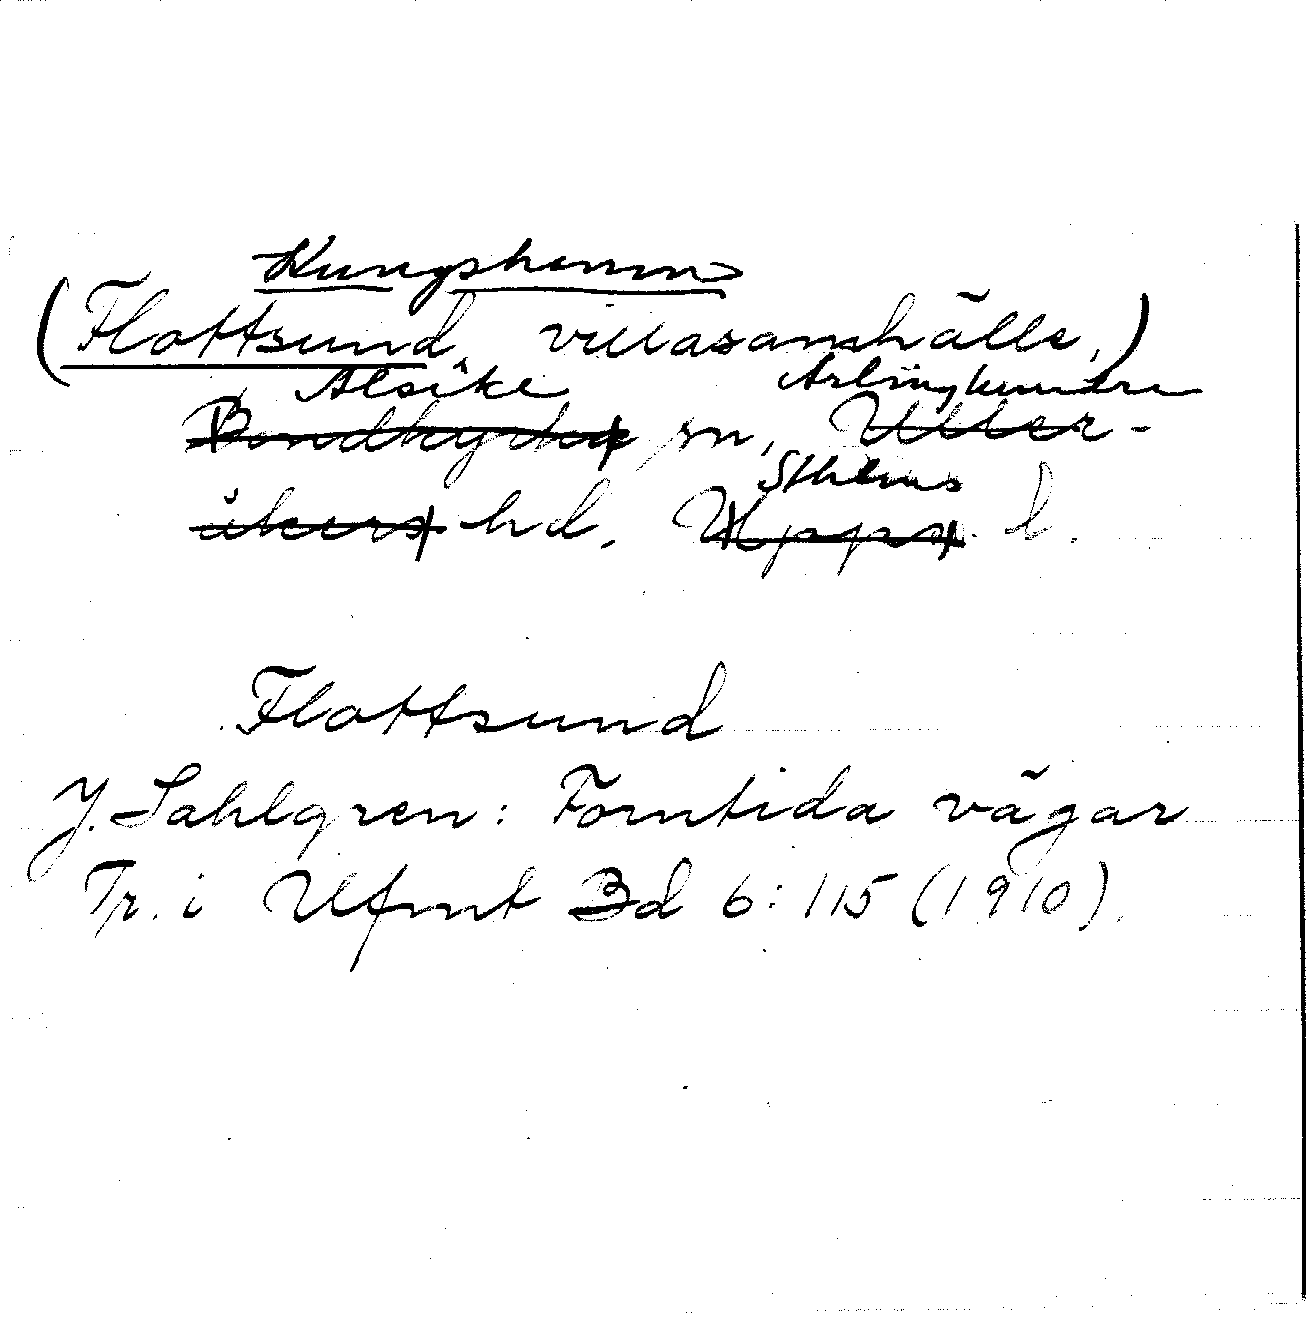 Kungshamn
(Flottsund, villasamhälle,)
Alsike Ärlinghundra
Bondkyrko sn, Uller-
Sthlms
åkers hd, Upps. l.
Flottsund
J. Sahlgren: Forntida vägar
Tr. i Ufmt Bd 6: 115 (1910).